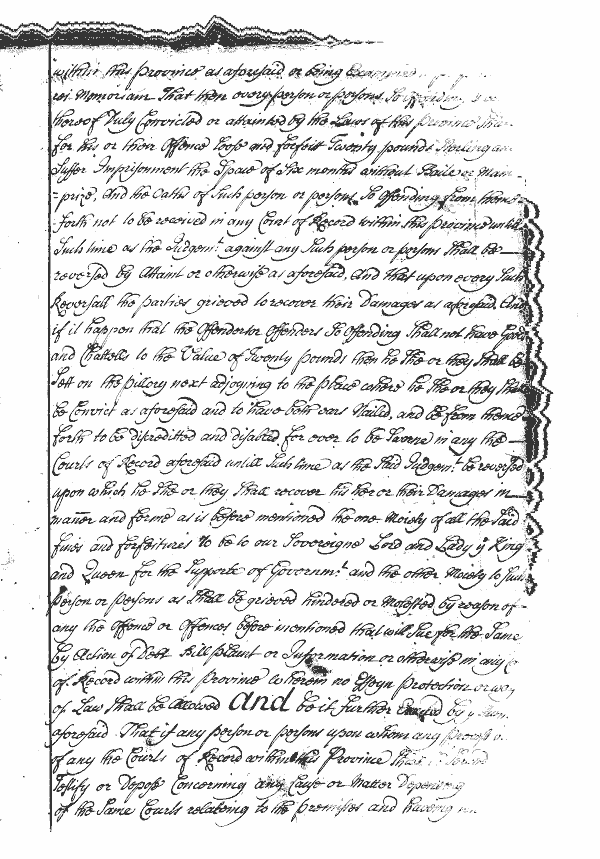 within this Province as aforesaid or being Examined
rei Memoriam That then every person or persons So offending
thereof Duly Convicted or attainted by the Laws of this Province
for his or their Offence loose and forfeit Twenty pounds Sterling
Suffer Imprisonment the Space of Six months without Baile or Main
-prize, And the Oaths of Such person or persons So Offending from thence
forth not to be received in any Court of Record within this Province until
Such time as the Judgemt. against any Such person or persons Shall be
reversed by Attaint or otherwise as aforesaid, And that upon every Such
Reversall the parties grieved to recover their Damages as aforesaid, And
if it happen that the Offendor Offenders So Offending Shall not have Goods
and Chattells to the Value of Twenty pounds then he She or they Shall be
Sett on the pillory next adjoyning to the place where he She or they Shall
be Convict as aforesaid and to have both ears Nailed, and be from thence
forth to be discreditted and disabled for ever to be Sworne in any the
Courts of Record aforesaid untill Such time as the Said Judgemt. be reversed
upon which he She or they Shall recover his her or their Damages in
manner and forme as is before mentioned the one Moiety of all the Said
fines and forfeitures to be to our Sovereigne Lord and Lady ye King
and Queen for the Supporte of Governmt. and the other Moiety to Such
Person or Persons as Shall be grieved hindered or Molested by reason of
any the Offence or Offences before mentioned that will Sue for the Same
by Action of Debt Bill plaint or Information or otherwise in any
of Record within this Province wherein no Essoyn Protection or
of Law Shall be Allowed And be it further Enacted by
aforesaid. That if any person or persons upon whom any
of any the Courts of Record within this Province
Testify or Depose Concerning any Cause or Matter Depending
of the Same Courts relateing to the Premises and haveing